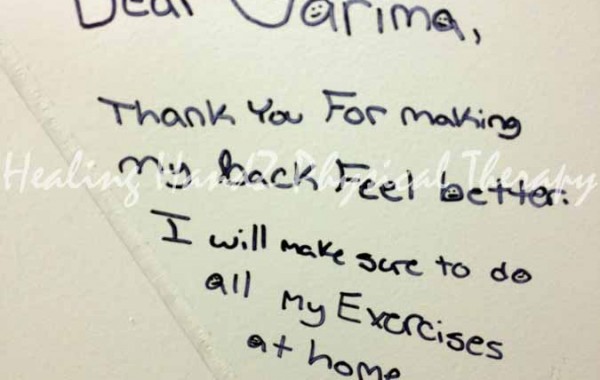 Dear Varima,
Thank You For making
my back Feel better.
Healing Handz Physical Therapy
I will make sure to do
all my Exercises
at home